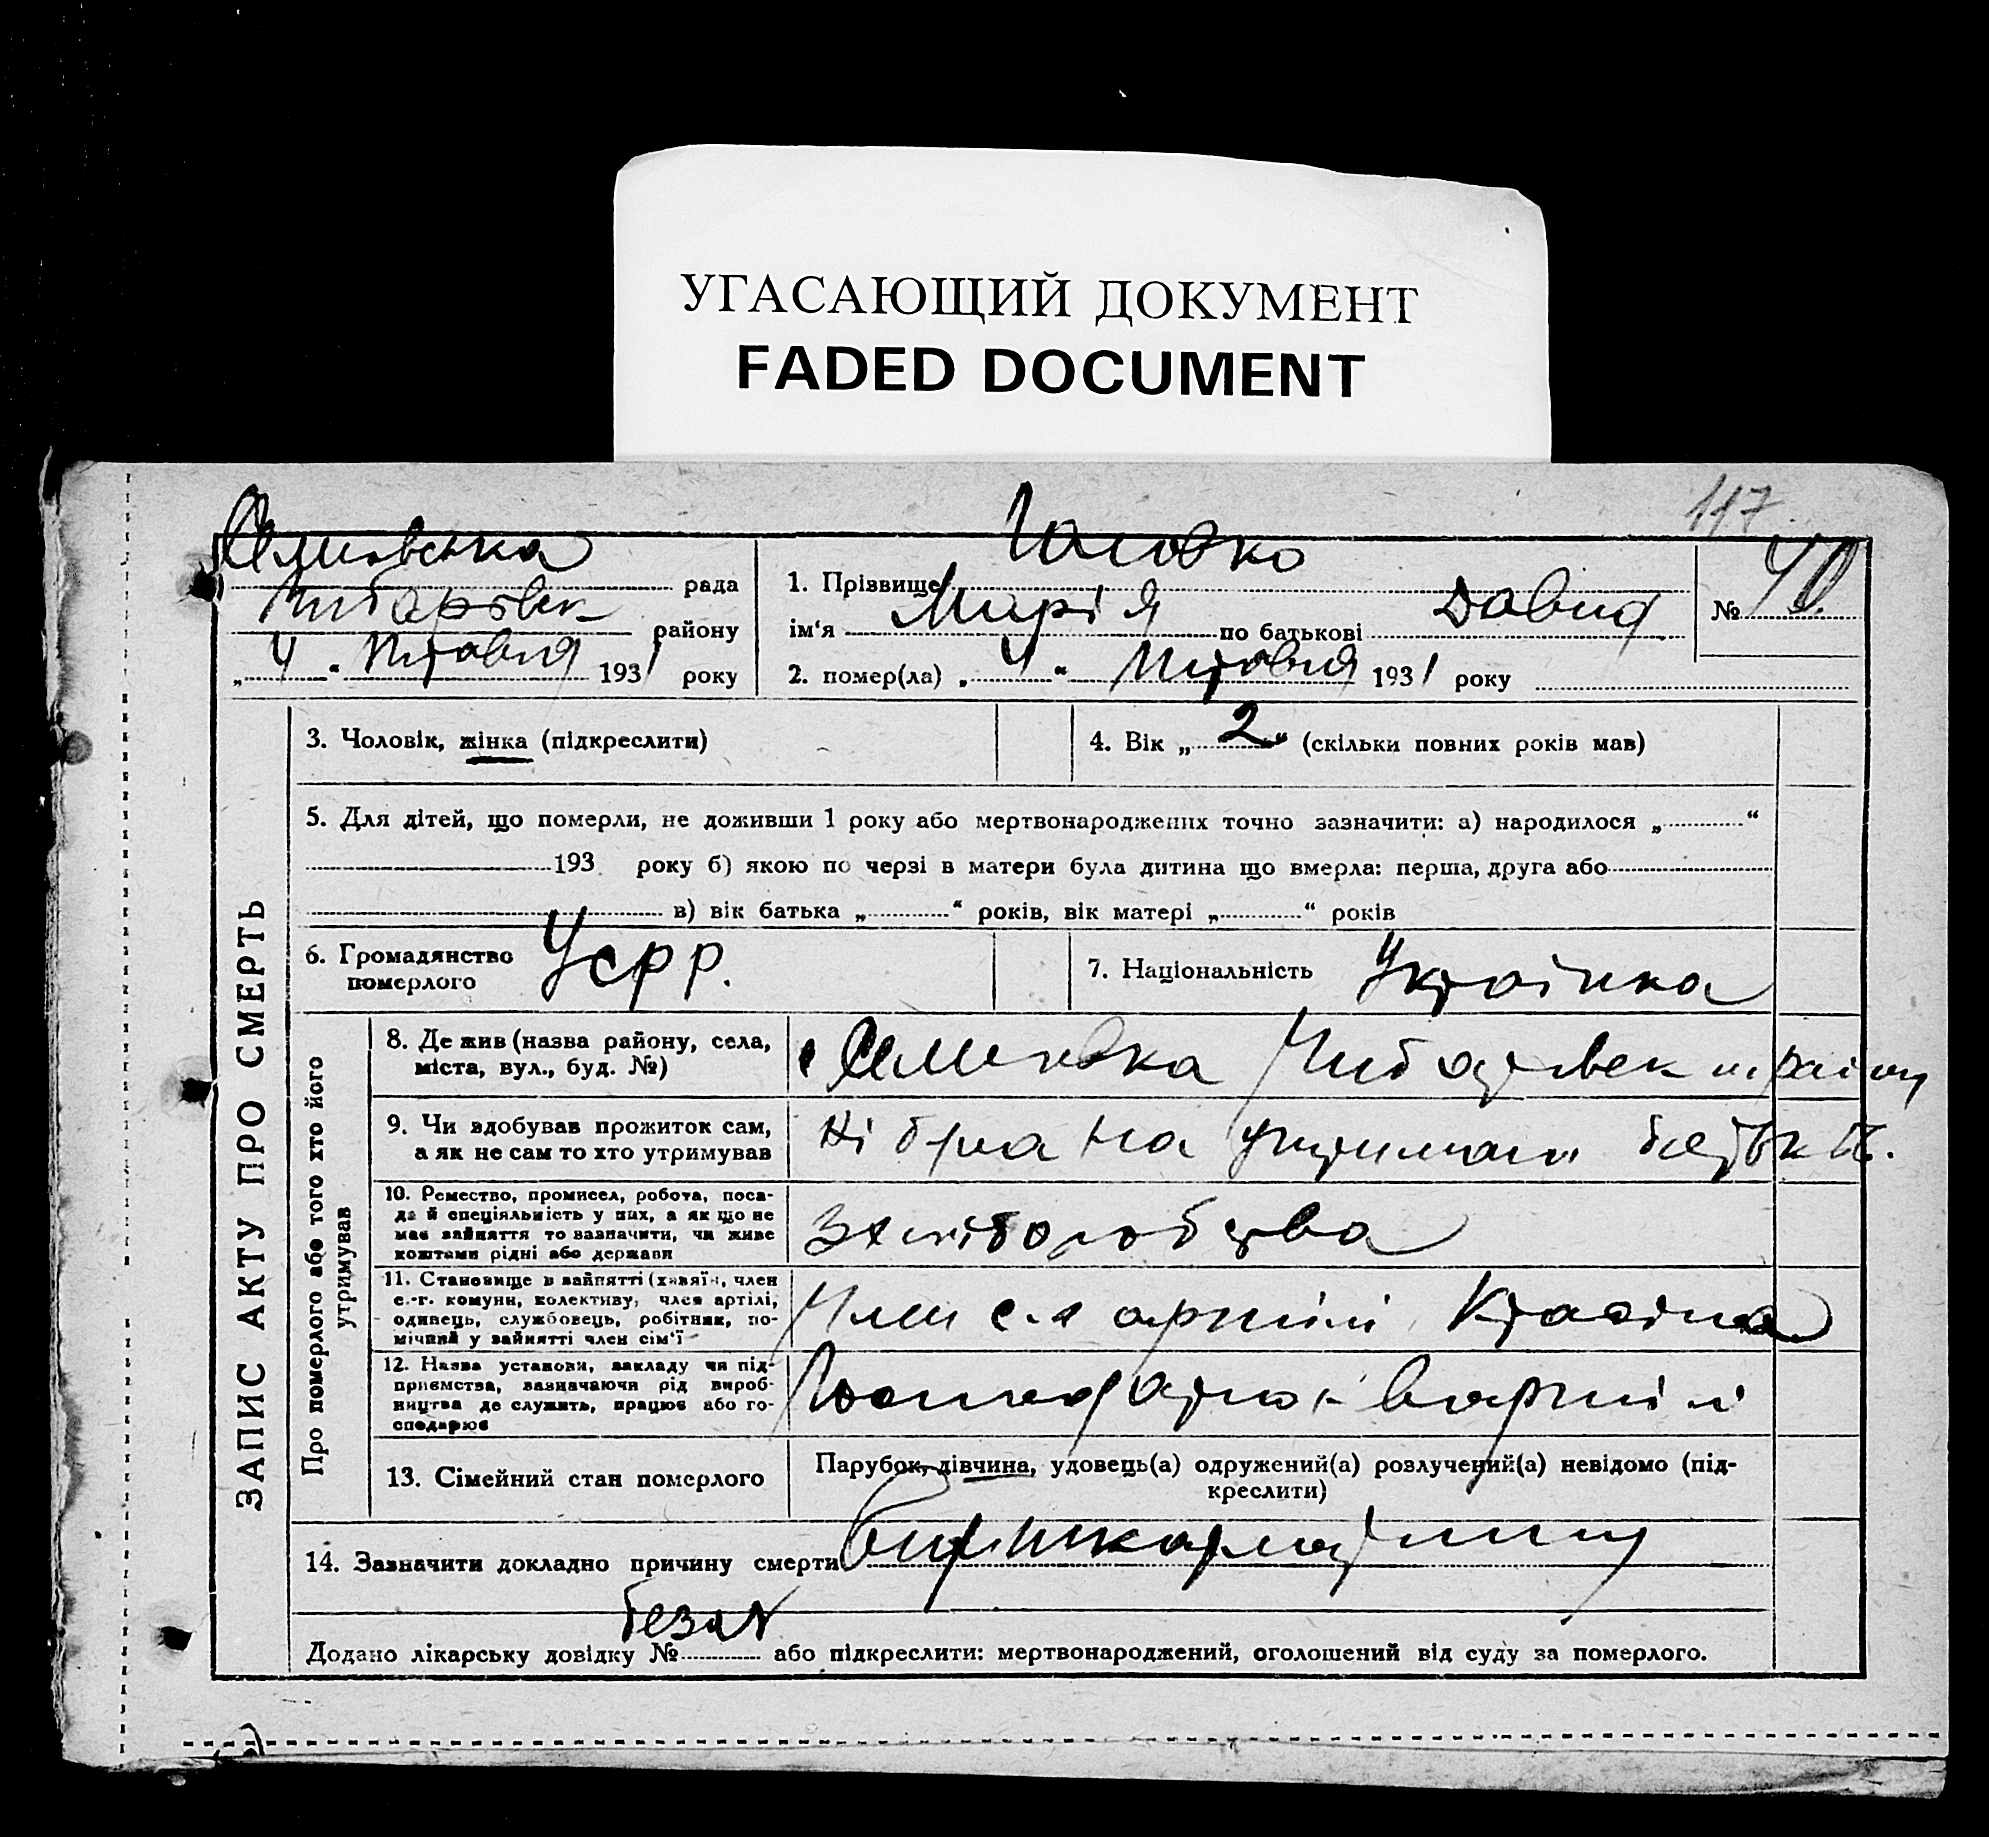 УГАСАЮЩИЙ ДОКУМЕНТ
FADED DOCUMENT
117
рада
району
„ 4 “ 1931 року
1. Прізвище Головко
ім‘я Марія по батькові Давид
2. помер(ла) „ 4 “ 1931 року
№ 40
ЗАПИС АКТУ ПРО СМЕРТЬ
3. Чоловік, жінка (підкреслити)
4. Вік „ 2 “ (скільки повних років мав)
5. Для дітей, що померли, не доживши 1 року або мертвонароджених точно зазначити: а) народилося „ “
193 року б) якою по черзі в матери була дитина що вмерла: перша, друга або
в) вік батька „ “ років, вік матері „ “ років
6. Громадянство
померлого
УСРР.
7. Національність Українка
Про померлого або того хто його
утримував
8. Де жив (назва району, села,
міста, вул., буд. №)
9. Чи здобував прожиток сам,
а як не сам то хто утримував
на
10. Ремество, промисел, робота, поса-
да й спеціяльність у них, а як що не
має зайняття то зазначити, чи живе
коштами рідні або держави
хліборобства
11. Становище в зайнятті (хазяїн, член
с.-г. комуни, колективу, член артілі,
одинець, службовець, робітник, по-
мічний у зайнятті член сім‘ї
Член с.г артілі
12. Назва установи, закладу чи під-
приємства, зазначаючи рід вироб-
ництва де служить, працює або го-
сподарює
13. Сімейний стан померлого
Парубок, дівчина, удовець(а) одружений(а) розлучений(а) невідомо (під-
креслити)
14. Зазначити докладно причину смерти
без
Додано лікарську довідку № або підкреслити: мертвонароджений, оголошений від суду за померлого.